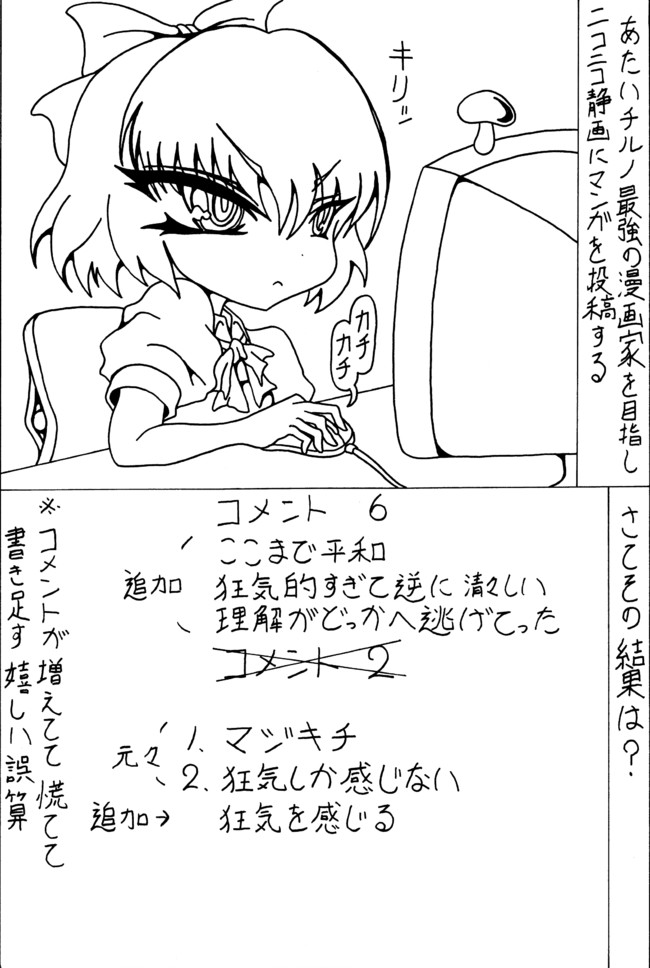 あたいチルノ最強の漫画家を目指し
ニコニコ静画にマンガを投稿する
キリッ
カチ
カチ
さてその結果は?
コメント 6
ここまで平和
追加 狂気的すぎて逆に清々しい
理解がどっかへ逃げてった
コメント 2
元々
1、マジキチ
2、狂気しか感じない
追加→ 狂気を感じる
※コメントが増えてて慌てて
書き足す嬉しい誤算